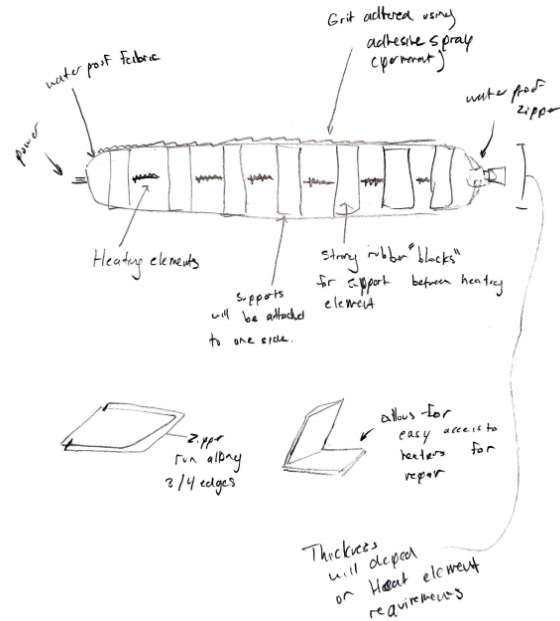 Grit adhered using
adhesive spray
(permanent)
water proof fabric
water proof
zipper
power
Heating elements
Supports
will be attached
to one side.
Strong rubber "blocks"
for support between heating
element
Zipper
run along
3/4 edges
allows for
easy access to
heaters for
repair
Thickness
will depend
on Heat element
requirements